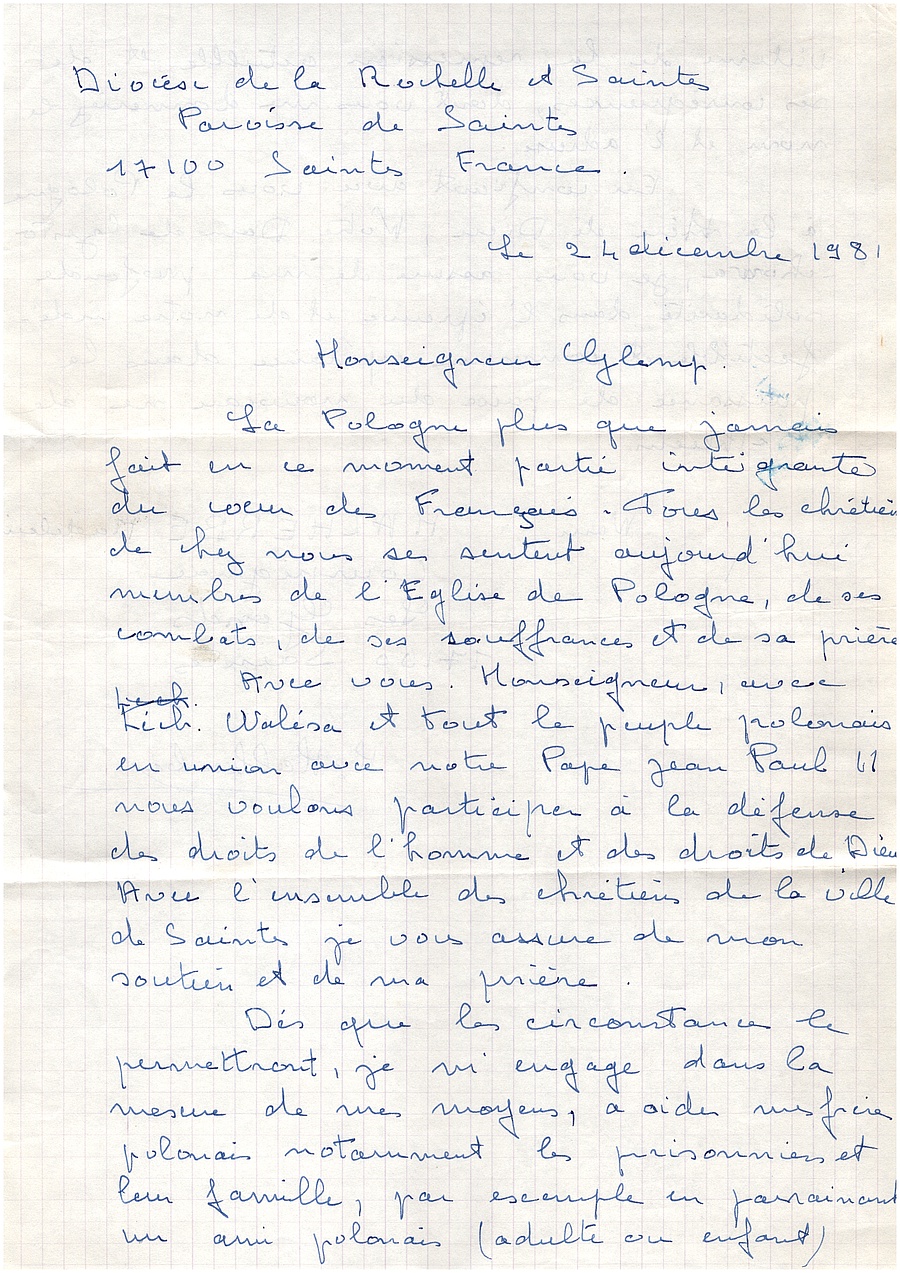 Diocèse de la Rochelle et Saintes
Paroisse de Saintes
17100 Saintes France.
Le 24 décembre 1981
Monseigneur Glemp.
La Pologne plus que jamais
fait en ce moment partie intégrante
du coeur des Français. Tous les chrétien
de chez nous se sentent aujourd'hui
membres de l'Eglise de Pologne, de ses
combats, de ses souffrances et de sa prière
Avec vous. Monseigneur, avec
Lech.
Lech. Walésa et tout le peuple polonais
en union avec notre Pape Jean Paul II
nous voulons participer à la défense
des droits de l'homme et des droits de Dieu
Avec l'ensemble des chrétiens de la ville
de Saintes je vous assure de mon
soutien et de ma prière.
Dès que les circonstances le
permettront, je m'engage dans la
mesure de mes moyens, a aider mes frères
polonais notamment les prisonniers et
leur famille, par escemple en parrainant
un ami polonais (adulte ou enfant)